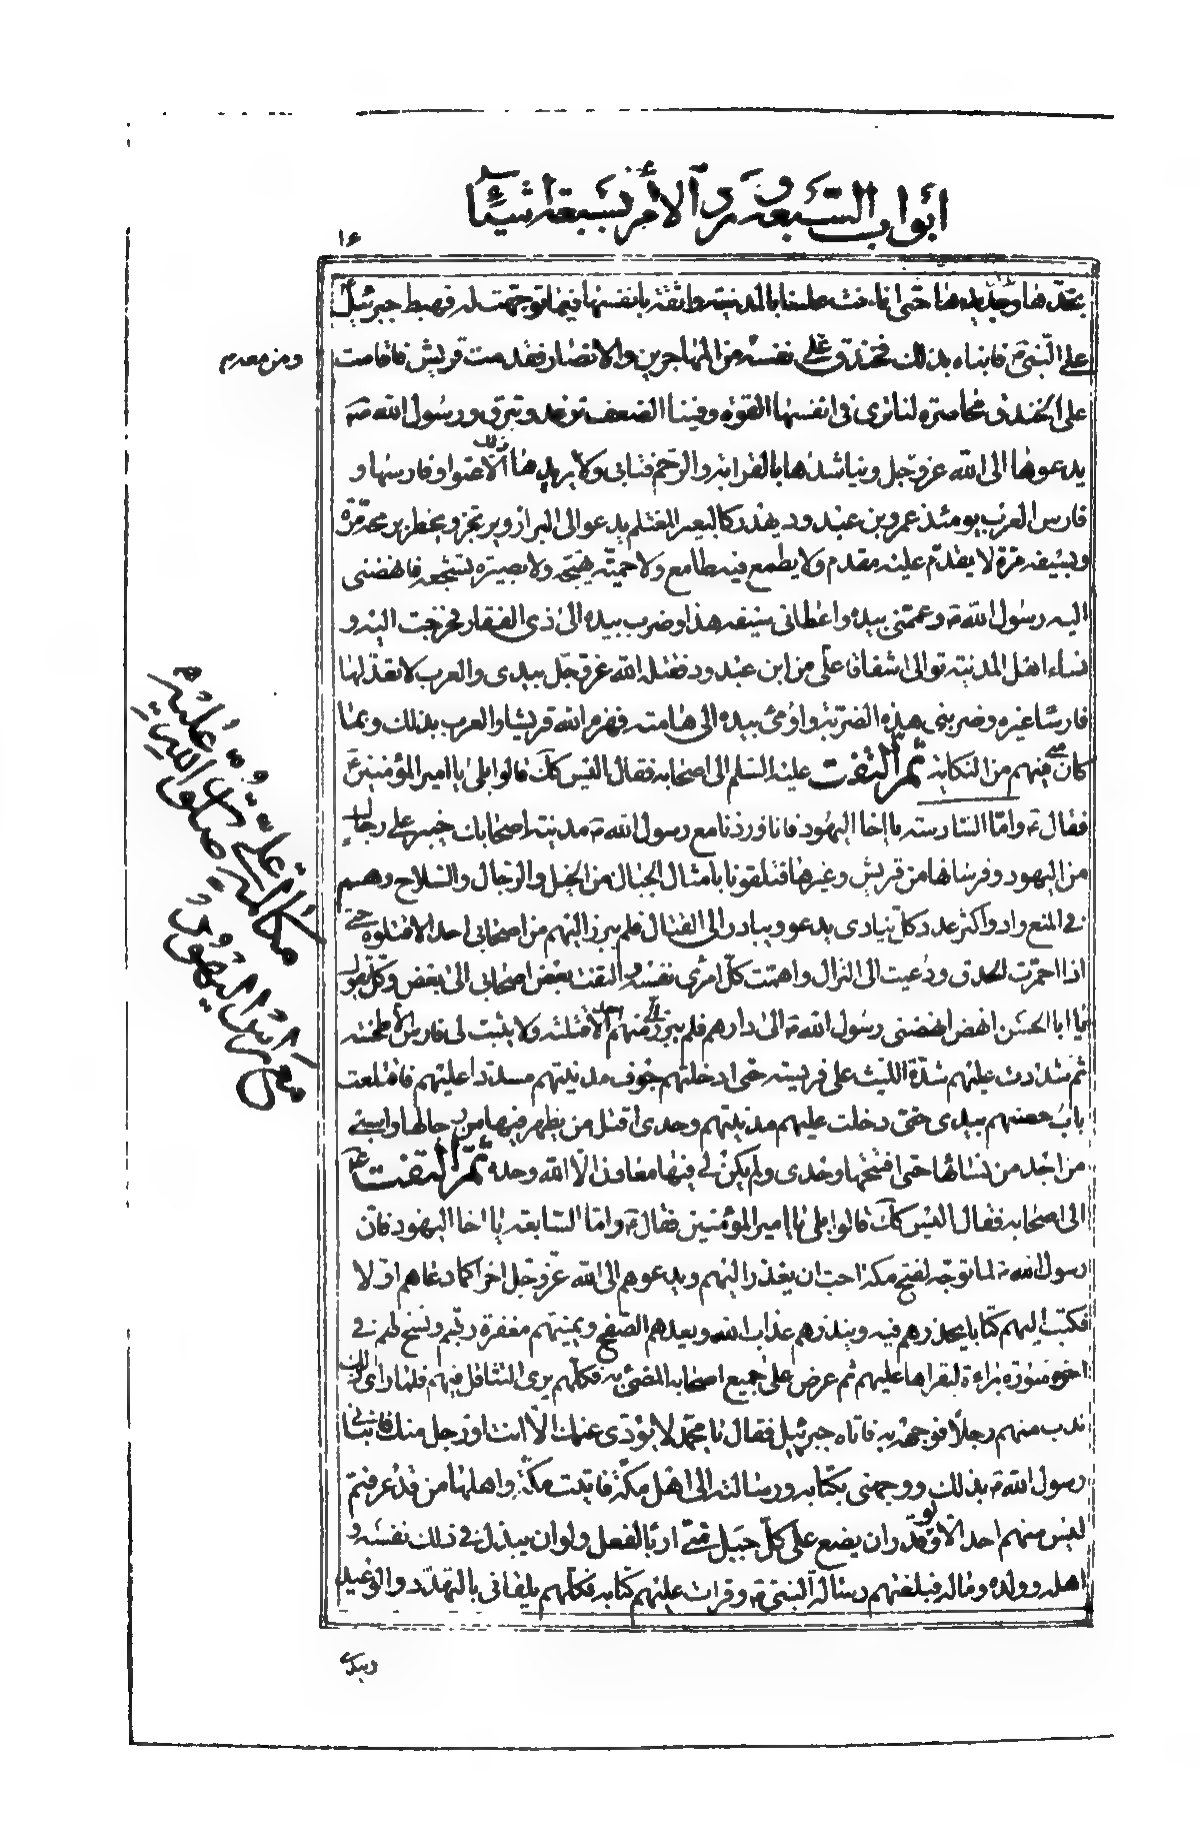 ابواب السبعة و الأمر بسبعة اشياء
١٤
بحدّها وحديدها حتى اناخت علينا بالمدينة واثقة بانفسها فيما توجّهت له فهبط جبرئيل
على النبي ص فانبأه بذلك فخندق على نفسه ومن معه من المهاجرين والانصار فقدمت قريش فاقامت
على الخندق محاصرة لنا ترى في انفسها القوّة وفينا الضعف ترعد وتبرق ورسول الله ص
يدعوها الى الله عز وجل ويناشدها بالقرابة والرحم فتابى ولا يزيدها ذلك الا عتوا وفارسها و
فارس العرب يومئذ عمرو بن عبد ود يهدر كالبعير المغتلم يدعو الى البراز ويرتجز ويخطر برمحه مرّة
وبسيفه مرة لا يقدم عليه مقدم ولا يطمع فيه طامع ولا حميّة تهيجه ولا بصيرة تشجعه فانهضني
اليه رسول الله ص وعمّمني بيده واعطاني سيفه هذا وضرب بيده الى ذي الفقار فخرجت اليه و
نساء اهل المدينة بواكي اشفاقا علي من ابن عبد ود فقتله الله عز وجل بيدي والعرب لا تعدّ لها
فارسا غيره وضربني هذه الضربة واومئ بيده الى هامته فهزم الله قريشا والعرب بذلك وبما
كان مني فيهم من النكاية ثم التفت عليه السلم الى اصحابه فقال اليس كك قالوا بلى يا امير المؤمنين
فقال ع واما السادسة يا اخا اليهود فانا وردنا مع رسول الله ص مدينة اصحابك خيبر على رجال
من اليهود وفرسانها من قريش وغيرها فتلقونا بامثال الجبال من الخيل والرجال والسلاح وهم
في امنع واد واكثر عدد كل ينادى يدعو ويبادر الى القتال فلم يبرز اليهم من اصحابي احد الا قتلوه حتى
اذا احمرت الحدق ودعيت الى النزال واهمت كل امرئ نفسه والتفت بعض اصحابي الى بعض وكل يقول
يا ابا الحسن انهض فانهضني رسول الله ص الى دارهم فلم يبرز الي منهم احد الا قتلته ولا يثبت لي فارس الا طحنته
ثم شددت عليهم شدّة الليث على فريسته حتى ادخلتهم جوف مدينتهم مسددا عليهم فاقتلعت
باب حصنهم بيدي حتى دخلت عليهم مدينتهم وحدي اقتل من يظهر فيها من رجالها واسبي
من اجد من نسائها حتى افتتحتها وحدى ولم يكن لي فيها معاون الا الله وحده ثم التفت ع
الى اصحابه فقال اليس كك قالوا بلى يا امير المؤمنين فقال ع واما السابعة يا اخا اليهود فان
رسول الله ص لما توجه لفتح مكة احب ان يعذر اليهم ويدعوهم الى الله عز وجل اخرا كما دعاهم اولا
فكتب اليهم كتابا يحذرهم فيه وينذرهم عذاب الله ويعدهم الصفح ويمنيهم مغفرة ربهم ونسخ لهم في
اخره سورة براءة ليقراها عليهم ثم عرض على جميع اصحابه المضى به فكلهم يرى التثاقل فيهم فلما راى ذلك
ندب منهم رجلا فوجهه به فاتاه جبرئيل فقال يا محمد لا يؤدى عنك الا انت او رجل منك فانبأني
رسول الله ص بذلك ووجهني بكتابه ورسالته الى اهل مكة فاتيت مكة واهلها من قد عرفتم
ليس منهم احد الا ولو قدر ان يضع على كل جبل مني اربا لفعل ولو ان يبذل في ذلك نفسه و
اهله وولده وماله فبلغتهم رسالة النبي ص وقرات عليهم كتابه فكلهم يلقاني بالتهدد والوعيد
ويبدي
ومن معه م
مكالمة علي عليه
صلوات الله
مع راس اليهود